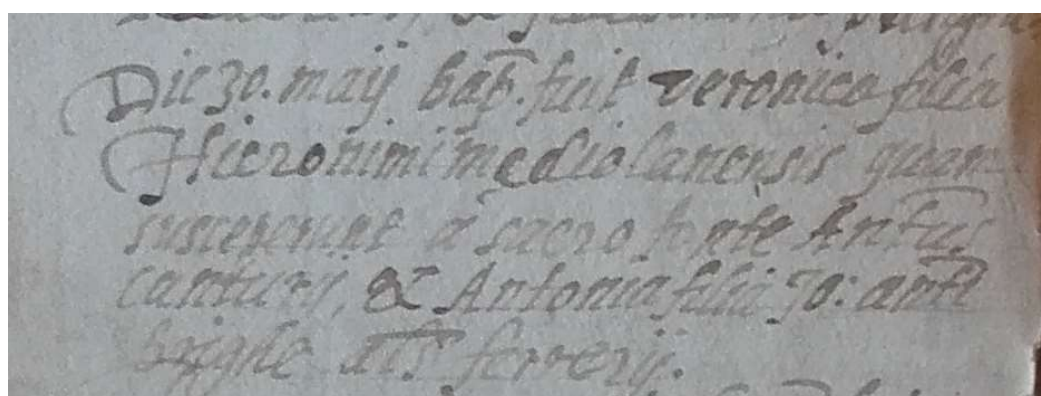 Die 30. maij bap. fuit veronica filia
Hieronimi mediolanensis quam
susceperunt a sacro fonte Antus
canturij, & Antonia filia Jo: anti
ferrerij.